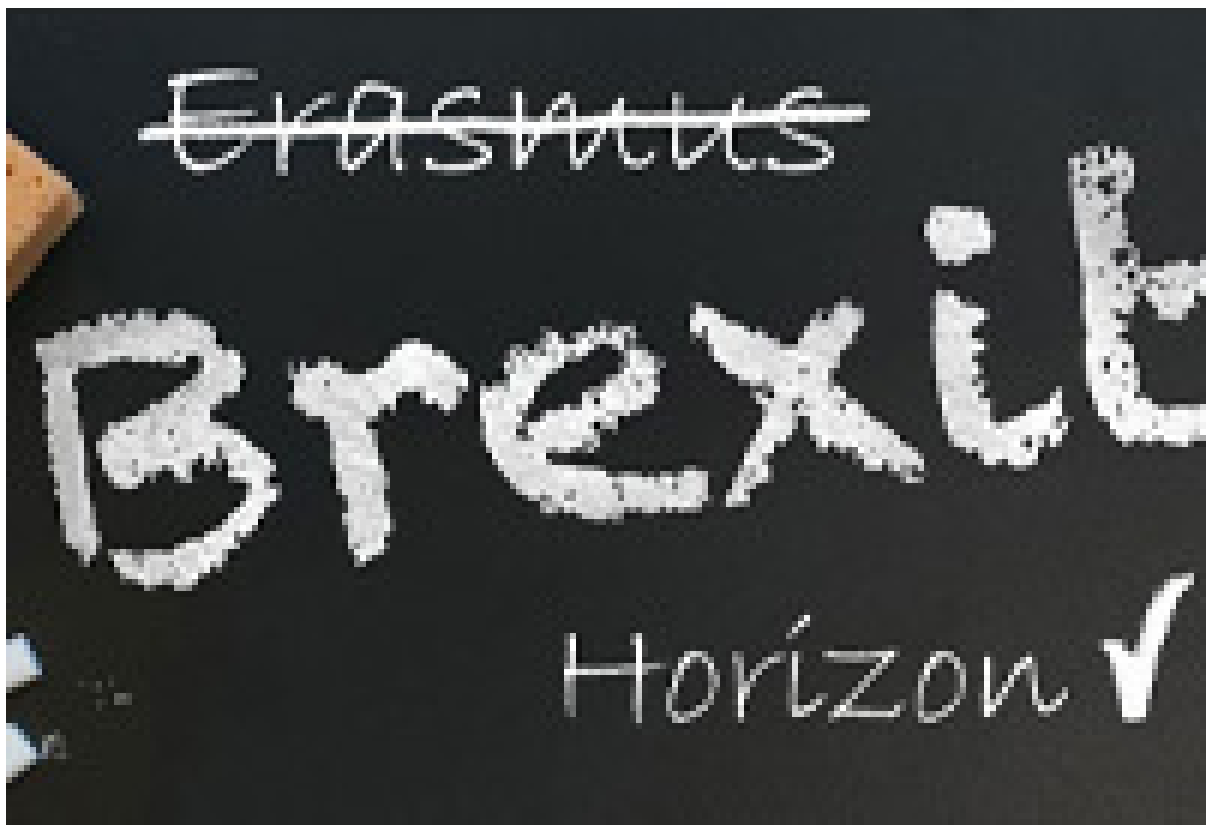 Erasmus
Brexit
Horizon